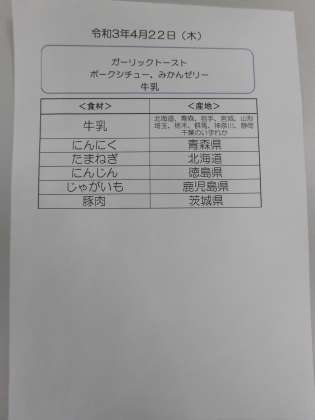 令和3年4月22日（木）
ガーリックトースト
ポークシチュー、みかんゼリー
牛乳
＜食材＞ ＜産地＞
牛乳 北海道、青森、岩手、宮城、山形
埼玉、栃木、群馬、神奈川、静岡
千葉のいずれか
にんにく 青森県
たまねぎ 北海道
にんじん 徳島県
じゃがいも 鹿児島県
豚肉 茨城県